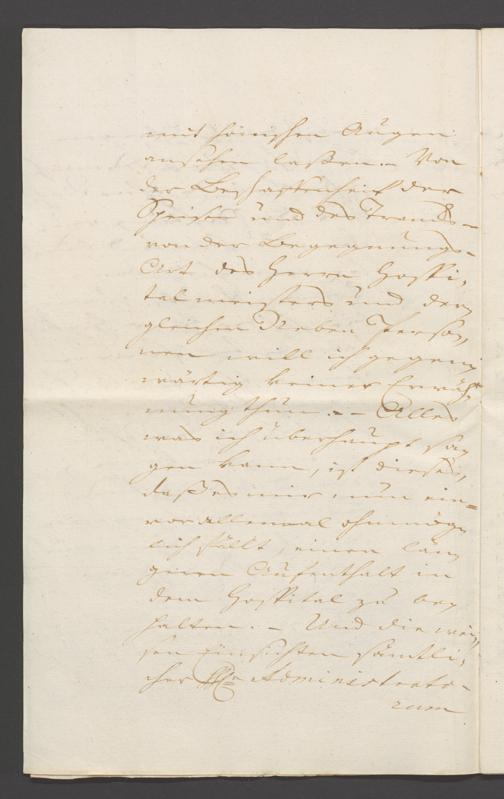 mit hönischen Augen
ansehen laßen. - Von
der Beschaffenheit der
Speisen und des Trancks -
von der Begegnungs-
Art des Herrn Hospi-
talmeisters und der-
gleichen Neben Perso-
nen will ich gegen-
wärtig keiner Erwäh-
nung thun. - Alles
was ich überhaupt sa-
gen kann, ist dieses,
daß es mir, nun ein-
vor allemal ohnmög-
lich fällt, einen län-
gern Aufenthalt in
dem Hospital zu bey-
halten. - Und die wei-
sen Einsichten sämtli-
cher Administrato-
rum